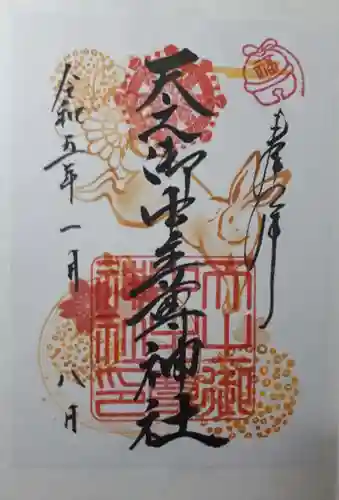 奉拝
天之御中主尊神社
令和五年一月八日
福